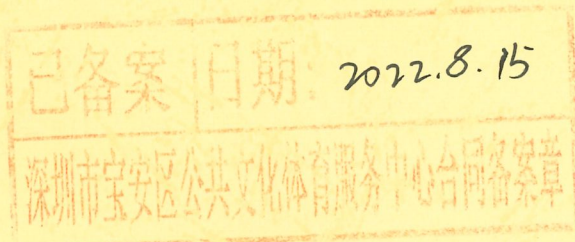 已备案 日期: 2022.8.15
深圳市宝安区公共文化体育服务中心合同备案章